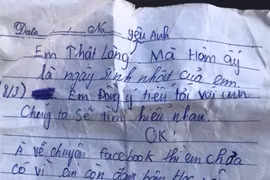 Date / No Yêu Anh
Em Thật Lòng, Mà Hôm ấy
là ngày Sinh nhật của em
8/3) Em Đồng ý tiến tới với anh
Chúng ta Sẽ tìm hiểu nhau
OK!
A về chuyện facebook thì em chưa
có vì em còn đang